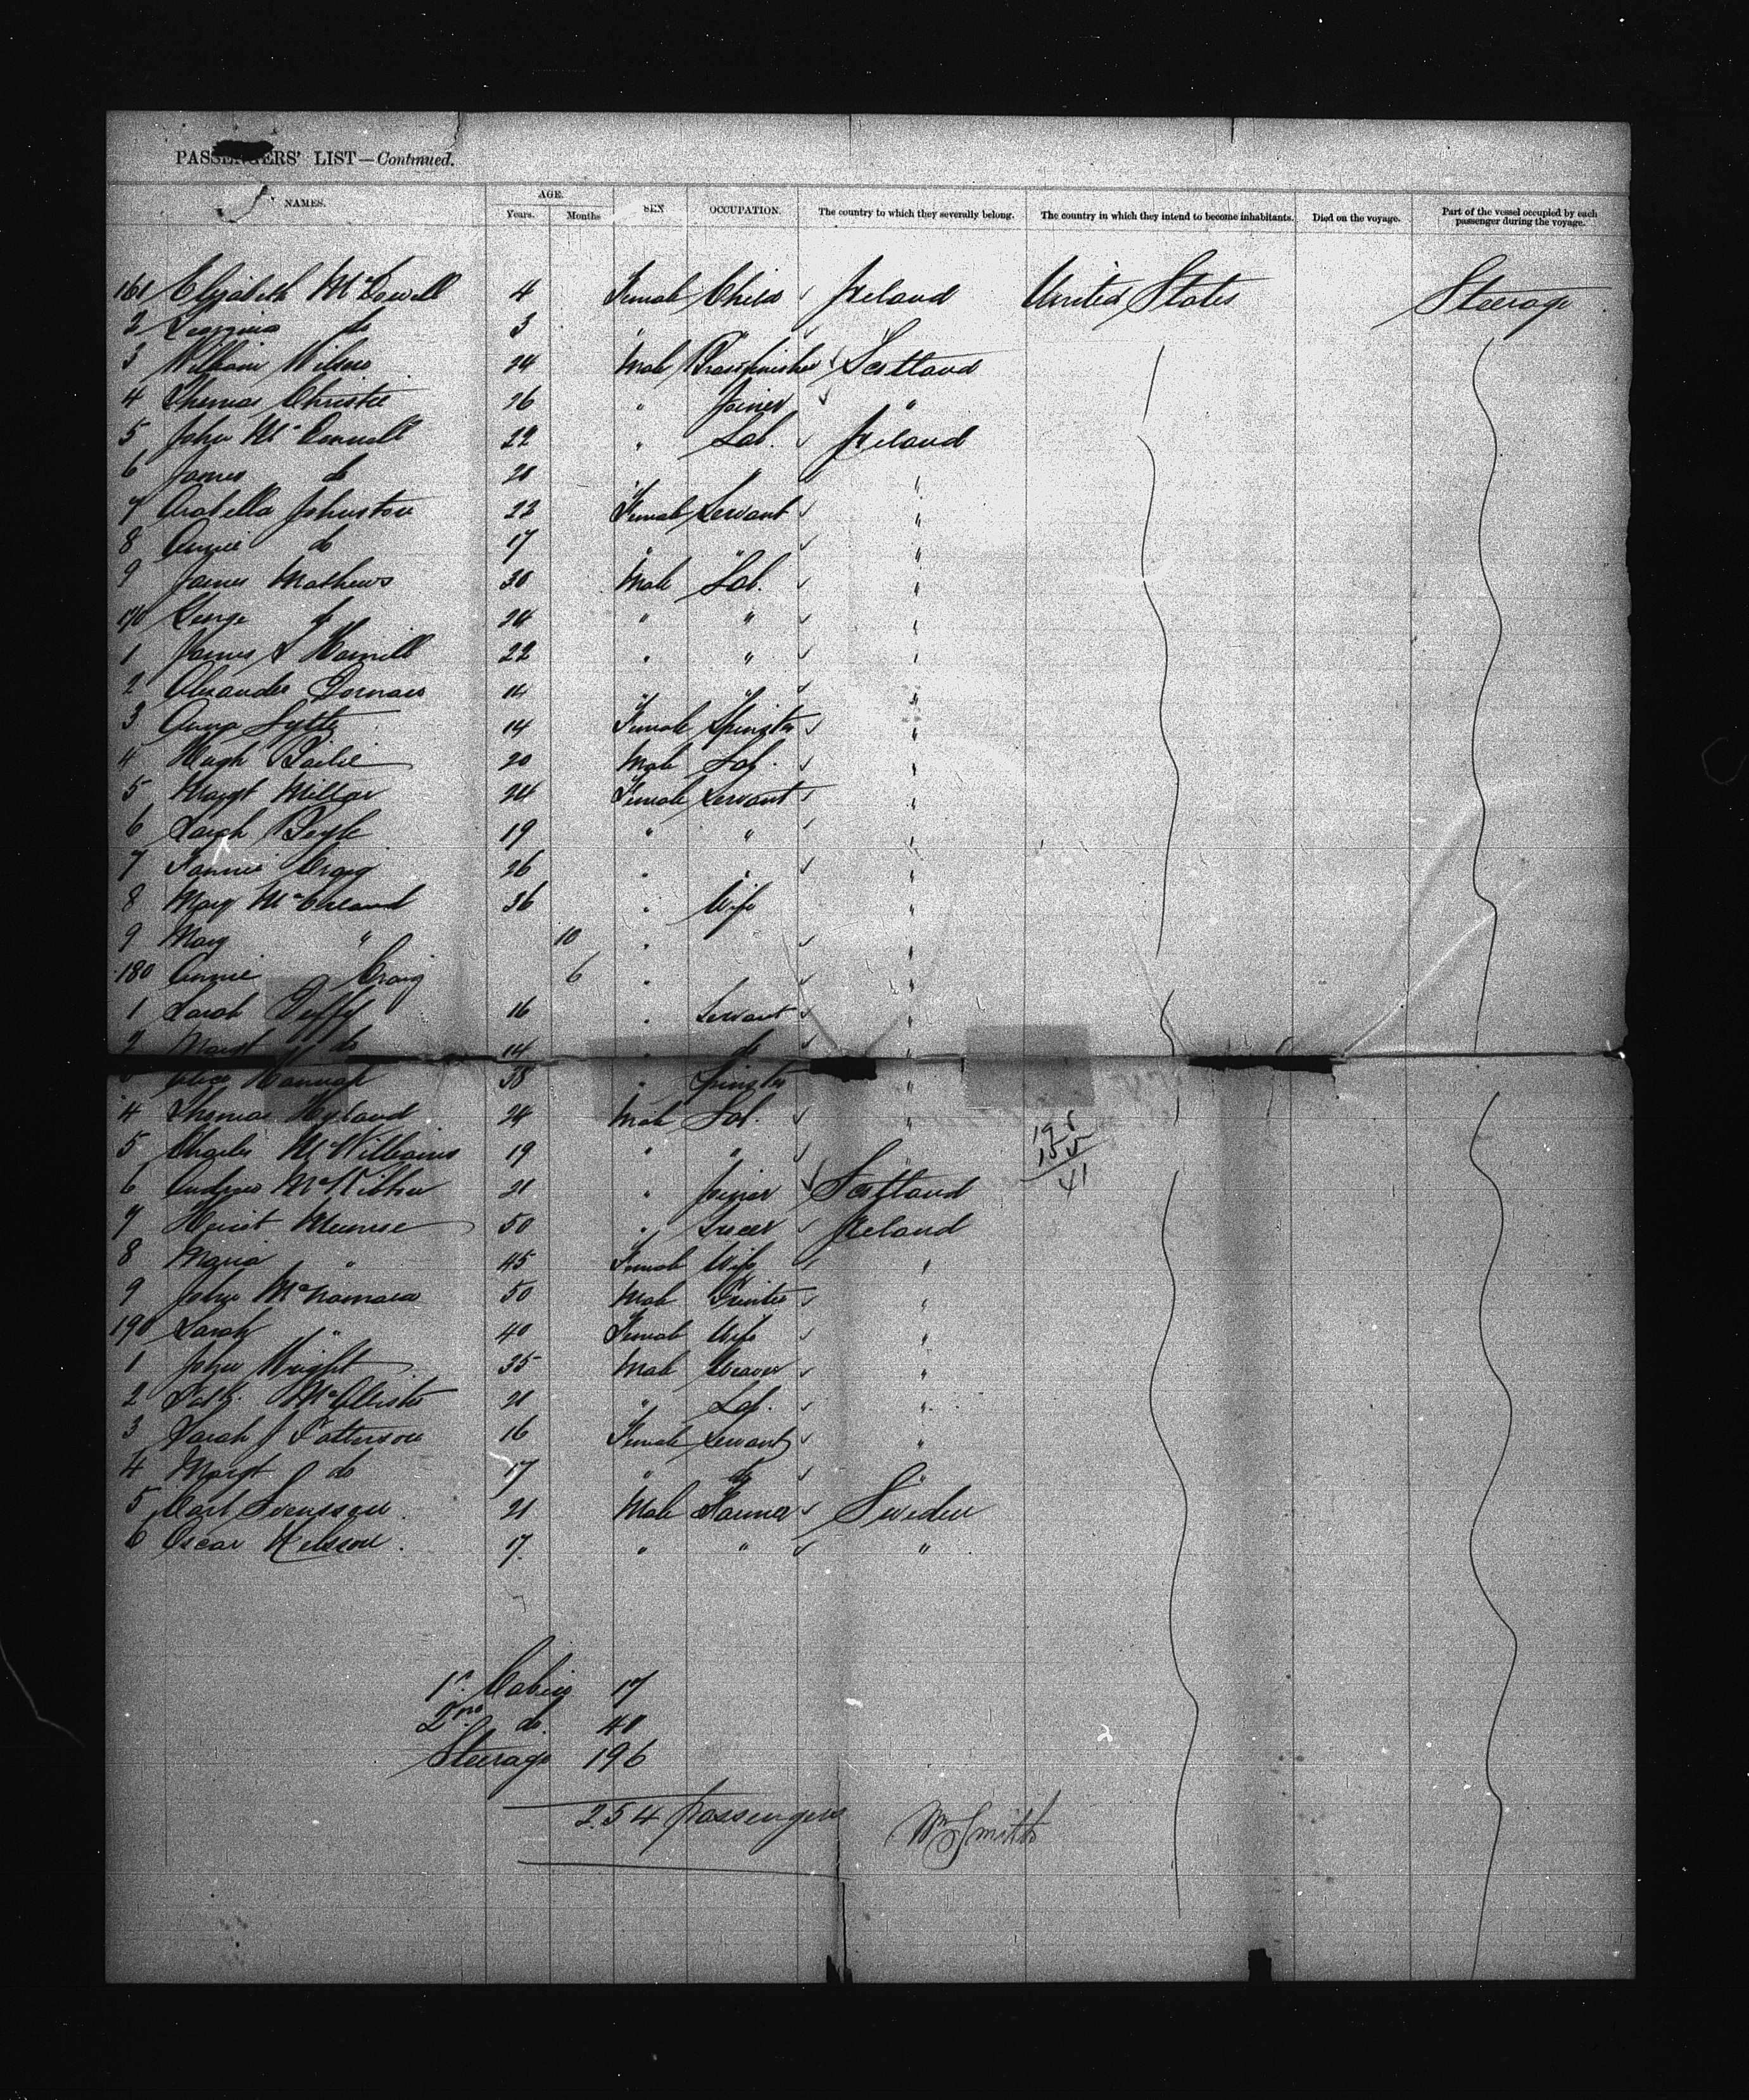 PASSENGERS' LIST—Continued.
NAMES. AGE. Years. Months SEX OCCUPATION. The country to which they severally belong. The country in which they intend to become inhabitants. Died on the voyage. Part of the vessel occupied by each passenger during the voyage.
161 Elizabeth McDowell 4 Female Child Ireland United States Steerage
2 Georgina do 3 " "
3 William Wilson 24 Male Brassfinisher Scotland
4 Thomas Christie 26 " Joiner "
5 John McConnell 22 " Lab. Ireland
6 James do 20 " " "
7 Arabella Johnston 23 Female Servant "
8 Annie do 17 " " "
9 James Mathews 30 Male Lab. "
170 George do 24 " " "
1 James 22 " " "
2 Alexander 14 " " "
3 Anna Lyttle 14 Female Spinster "
4 Hugh Bailie 20 Male Lab. "
5 Margt Millar 24 Female Servant "
6 Sarah Boyle 19 " " "
7 Fannie Craig 26 " " "
8 Mary McCreland 36 " Wife "
9 Mary " 10 " "
180 Annie Craig 6 " "
1 Sarah Duffy 16 " Servant "
2 Margt do 14 " do "
3 Alice Hannah 38 " Spinster "
4 Thomas Hyland 24 Male Lab. "
5 Charles McWilliams 19 " "
196
155
41
6 Andrew McKibben 21 " Joiner Scotland
7 Munroe 50 " Grocer Ireland
8 Maria " 45 Female Wife "
9 John McNamara 50 Male Printer "
190 Sarah " 40 Female Wife "
1 John Wright 35 Male Weaver "
2 Patk. McAllister 21 " Lab. "
3 Sarah J Patterson 16 Female Servant "
4 Margt do 17 " do "
5 Carl Svensson 21 Male Farmer Sweden
6 Oscar Nelsson. 17. " " "
1st. Cabin 17
2nd. do. 41
Steerage 196
254 passengers
Wm Smith